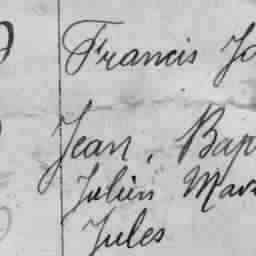 Francis Jo
Jean, Bap
Julien Mar
Jules